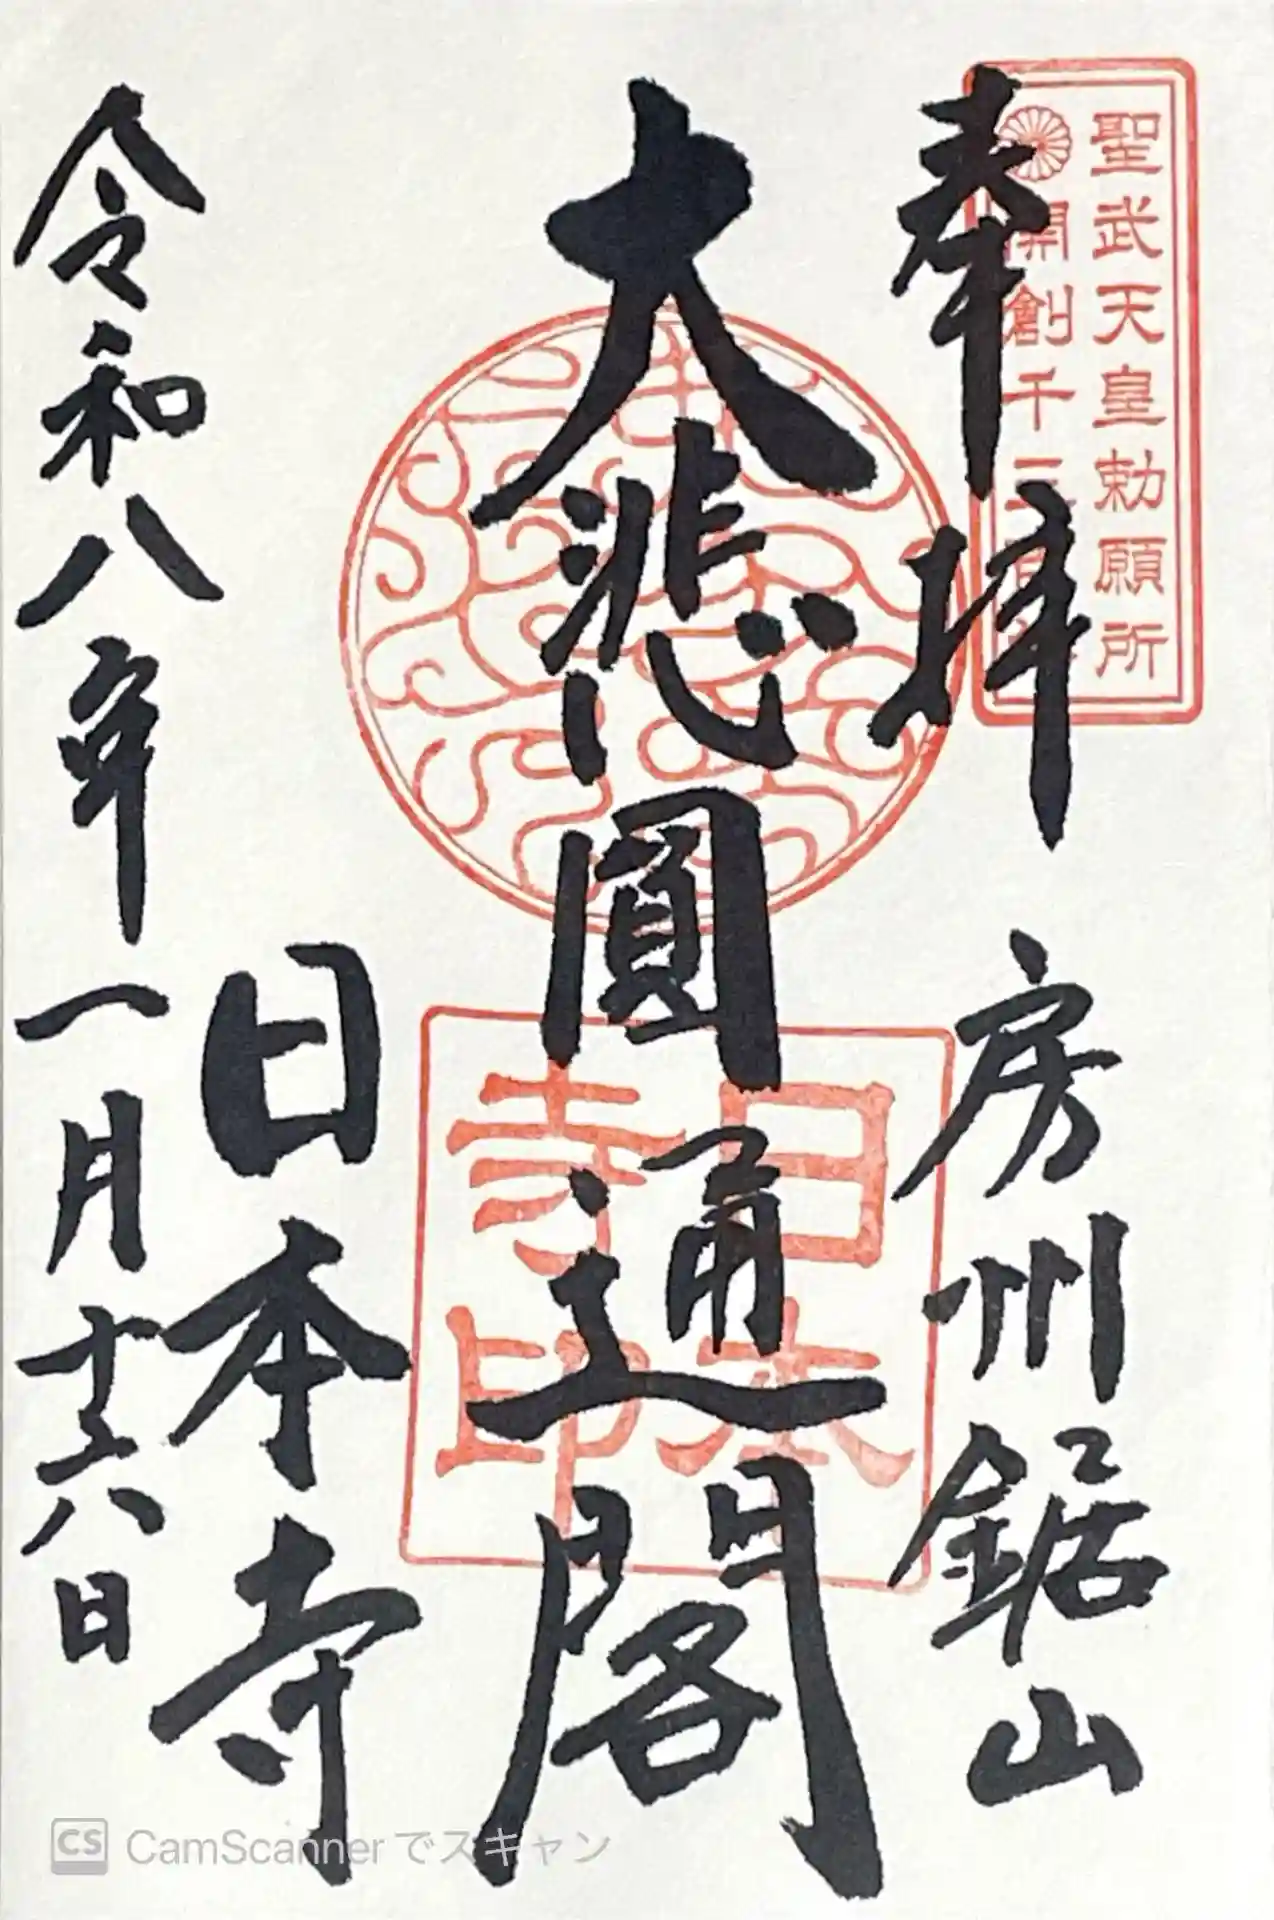 聖武天皇勅願所
開創千三百年
奉拝 房州鋸山
大悲圓通閣
日本寺印
日本寺
令和八年一月十六日
CS CamScannerでスキャン